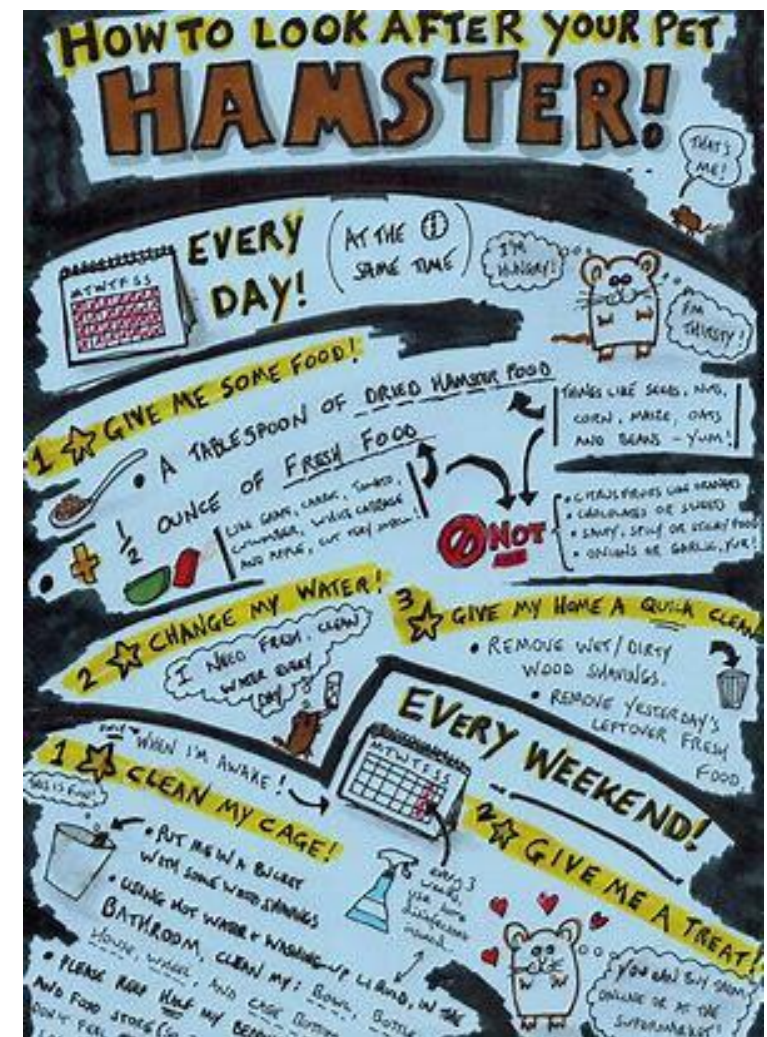 HOW TO LOOK AFTER YOUR PET
HAMSTER!
THAT'S
ME!
EVERY
DAY!
(AT THE
SAME TIME)
I'M
HUNGRY!
I'M
THIRSTY!
MTWTFSS
1 GIVE ME SOME FOOD!
• A TABLESPOON OF DRIED HAMSTER FOOD
THINGS LIKE SEEDS, NUTS,
CORN, MAIZE, OATS
AND BEANS – YUM!
• + 1/2 OUNCE OF FRESH FOOD
LIKE CARROT, TOMATO,
CUCUMBER, CABBAGE
AND APPLE, CUT VERY SMALL!
NOT
• CITRUS FRUITS LIKE ORANGES
• CHOCOLATES OR SWEETS
• SALTY, SPICY OR STICKY FOOD
• ONIONS OR GARLIC, YUK!
2 CHANGE MY WATER!
I NEED FRESH, CLEAN
WATER EVERY
DAY
3 GIVE MY HOME A QUICK CLEAN
• REMOVE WET/DIRTY
WOOD SHAVINGS.
• REMOVE YESTERDAY'S
LEFTOVER FRESH
FOOD
EVERY WEEKEND!
MTWTFSS
ONLY WHEN I'M AWAKE!
1 CLEAN MY CAGE!
THIS IS FUN!
• PUT ME IN A BUCKET
WITH SOME WOOD SHAVINGS
• USING HOT WATER + WASHING-UP LIQUID, IN THE
BATHROOM, CLEAN MY: BOWL, BOTTLE
HOUSE, WHEEL, AND CAGE BOTTOM
• PLEASE KEEP HALF MY BEDDING
AND FOOD STORE (SO
DON'T FEEL
every 3
weeks,
use some
disinfectant
2 GIVE ME A TREAT!
YOU CAN BUY THEM
ONLINE OR AT THE
SUPERMARKET!